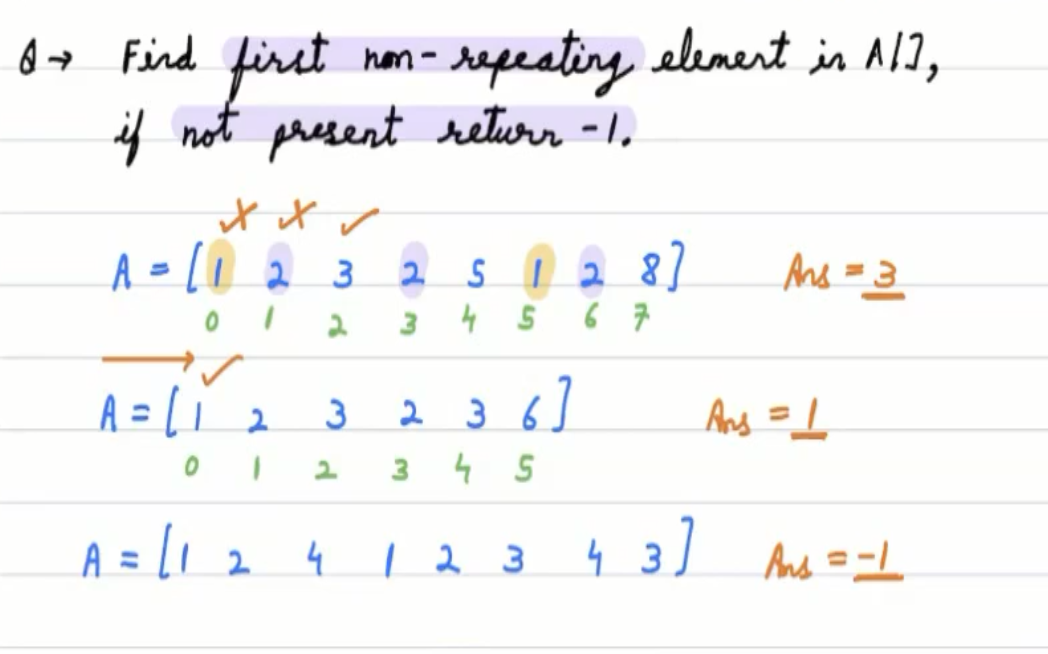 Q → Find first non-repeating element in A[],
if not present return -1.
A = [1 2 3 2 5 1 2 8] Ans = 3
0 1 2 3 4 5 6 7
A = [1 2 3 2 3 6] Ans = 1
0 1 2 3 4 5
A = [1 2 4 1 2 3 4 3] Ans = -1